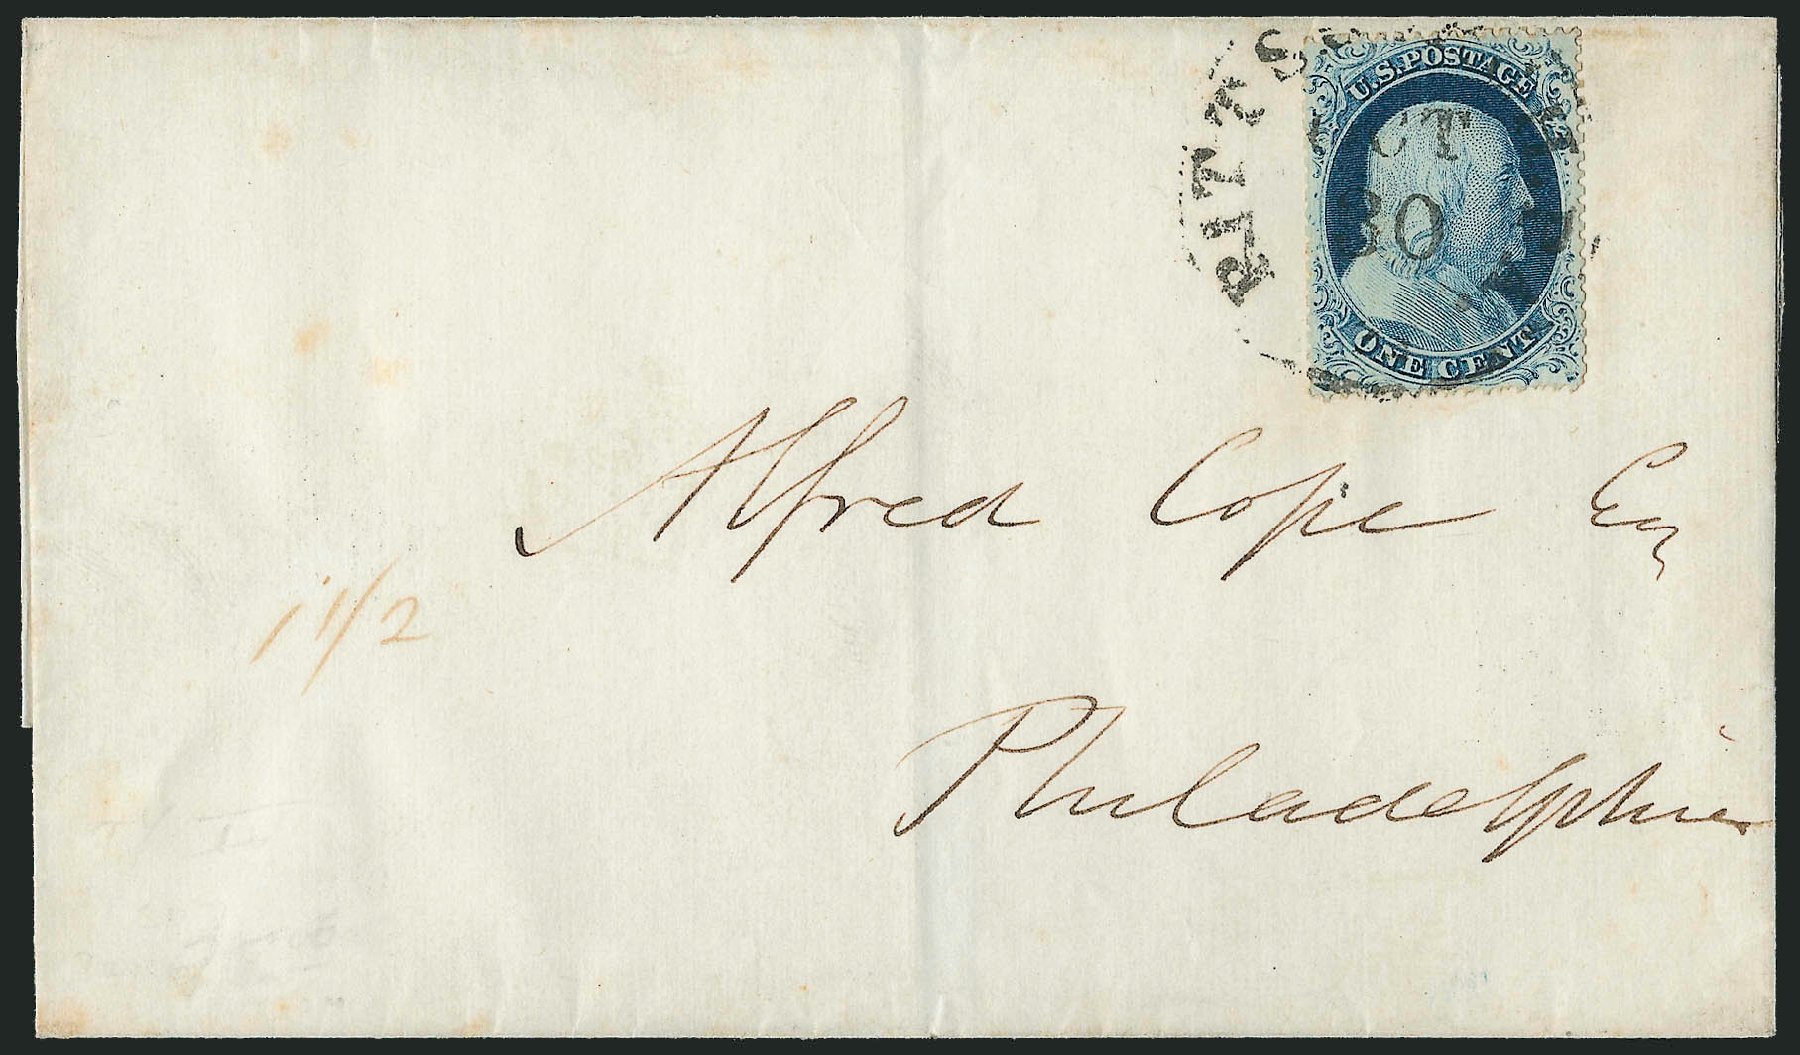 PITTS
U.S. POSTAGE
OCT
30
ONE CENT
Alfred Cope Esq
1 1/2
Philadelphia